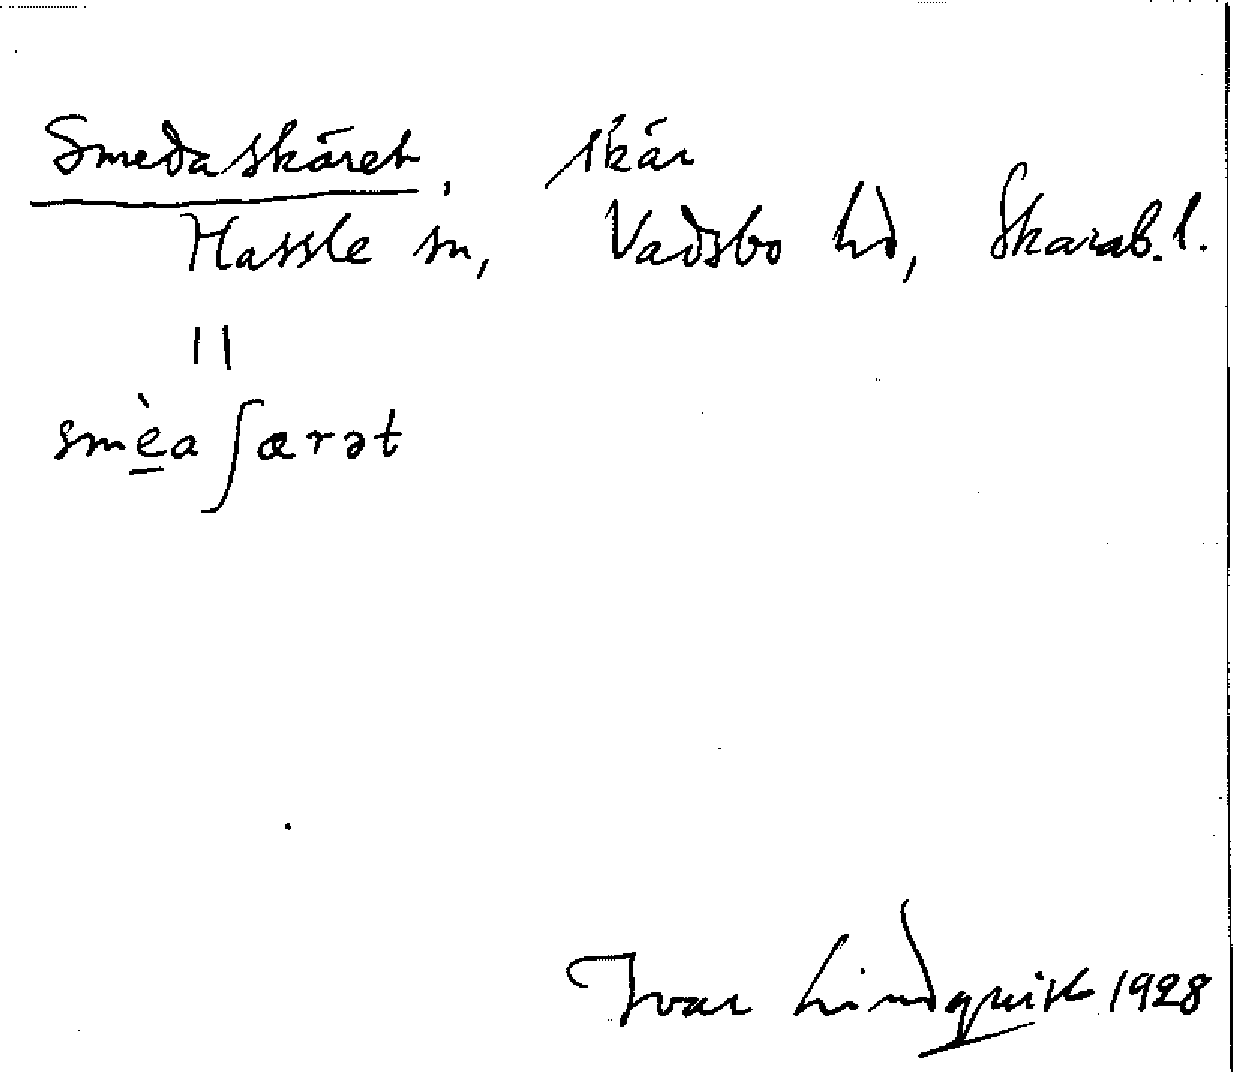 Smedaskäret, skär
Hassle sn, Vadsbo hd, Skarab. l.
||
smèa ʃærət
Ivar Lindquist 1928